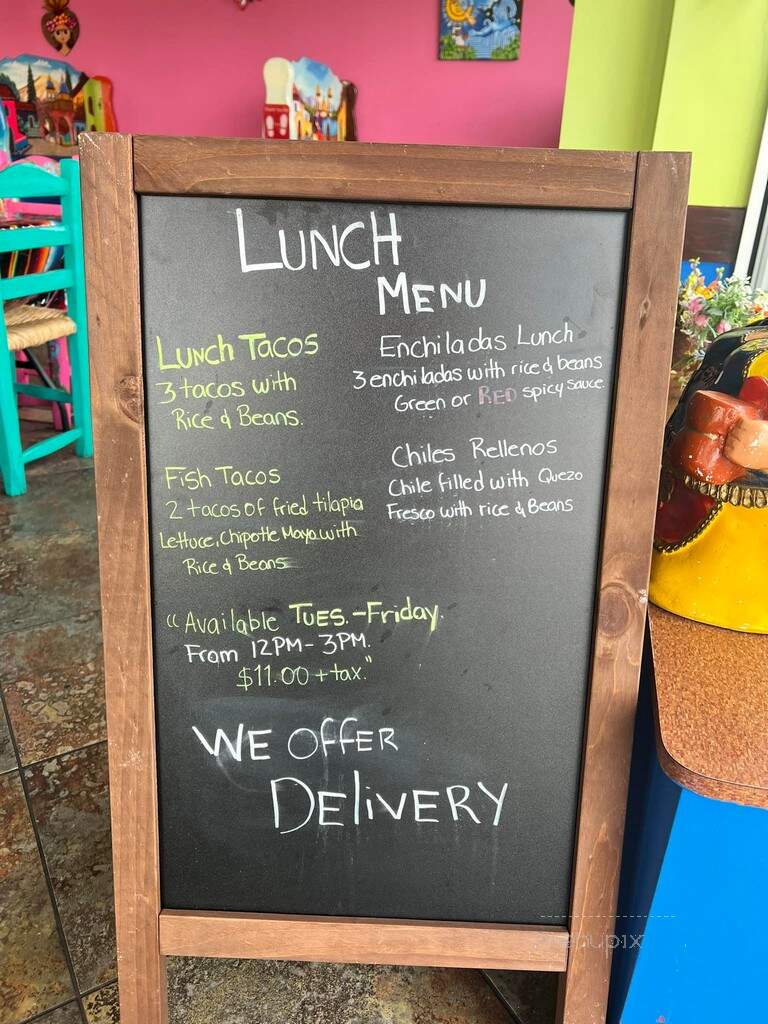 LUNCH
MENU
LUNCH TACOS
3 tacos with
Rice & Beans.
Fish Tacos
2 tacos of fried tilapia
Lettuce, Chipotle Mayo with
Rice & Beans
Enchiladas Lunch
3 enchiladas with rice & beans
Green or RED spicy sauce.
Chiles Rellenos
Chile filled with Quezo
Fresco with rice & Beans
"Available TUES.-Friday.
From 12PM-3PM.
$11.00 + tax."
WE OFFER
DELIVERY